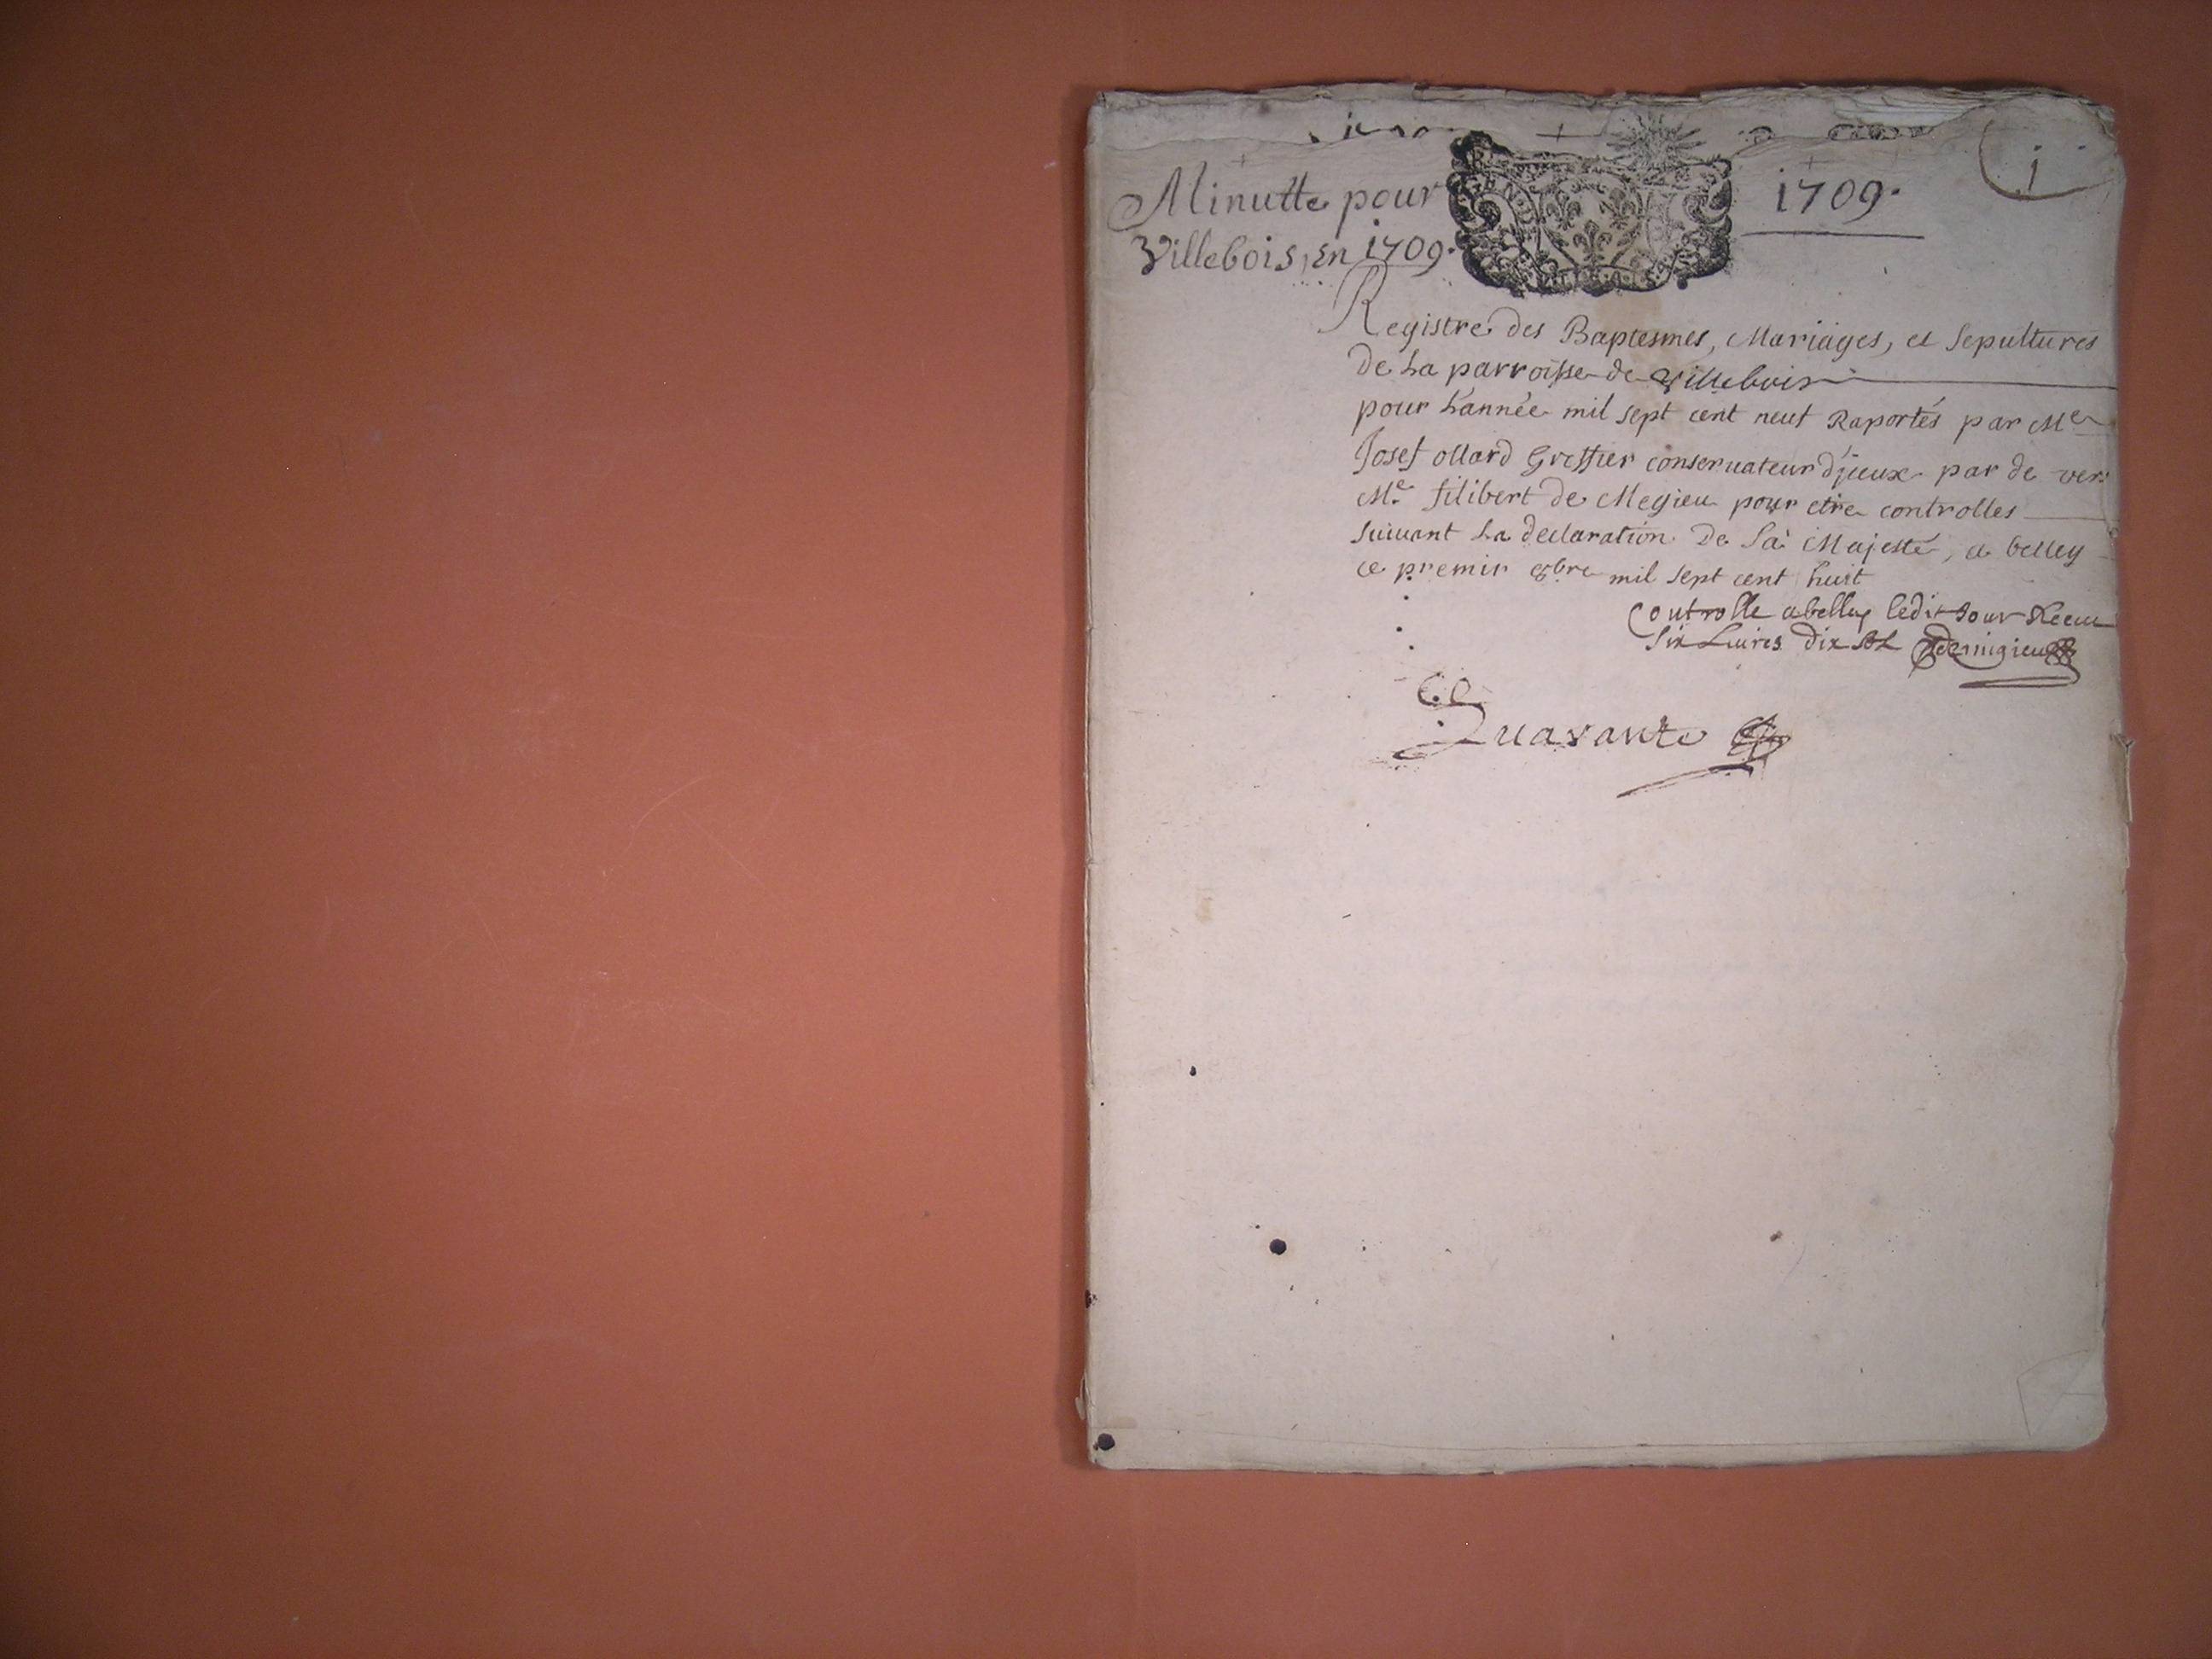 1
Minutte pour
1709.
Villebois, en 1709.
Registre des Baptesmes, Mariages, et Sepultures
De La parroisse de Villebois
pour L'année mil sept cent neuf Raportés par Me
Josef ollard Greffier conservateur d'jceux par de vers
Me. filibert de Megieu pour etre controlles
suivant La declaration De Sa Majesté, a belley
ce premir mil sept cent huit
Controlle a belley ledit Jour Receu
Six Livres dix
Quarante